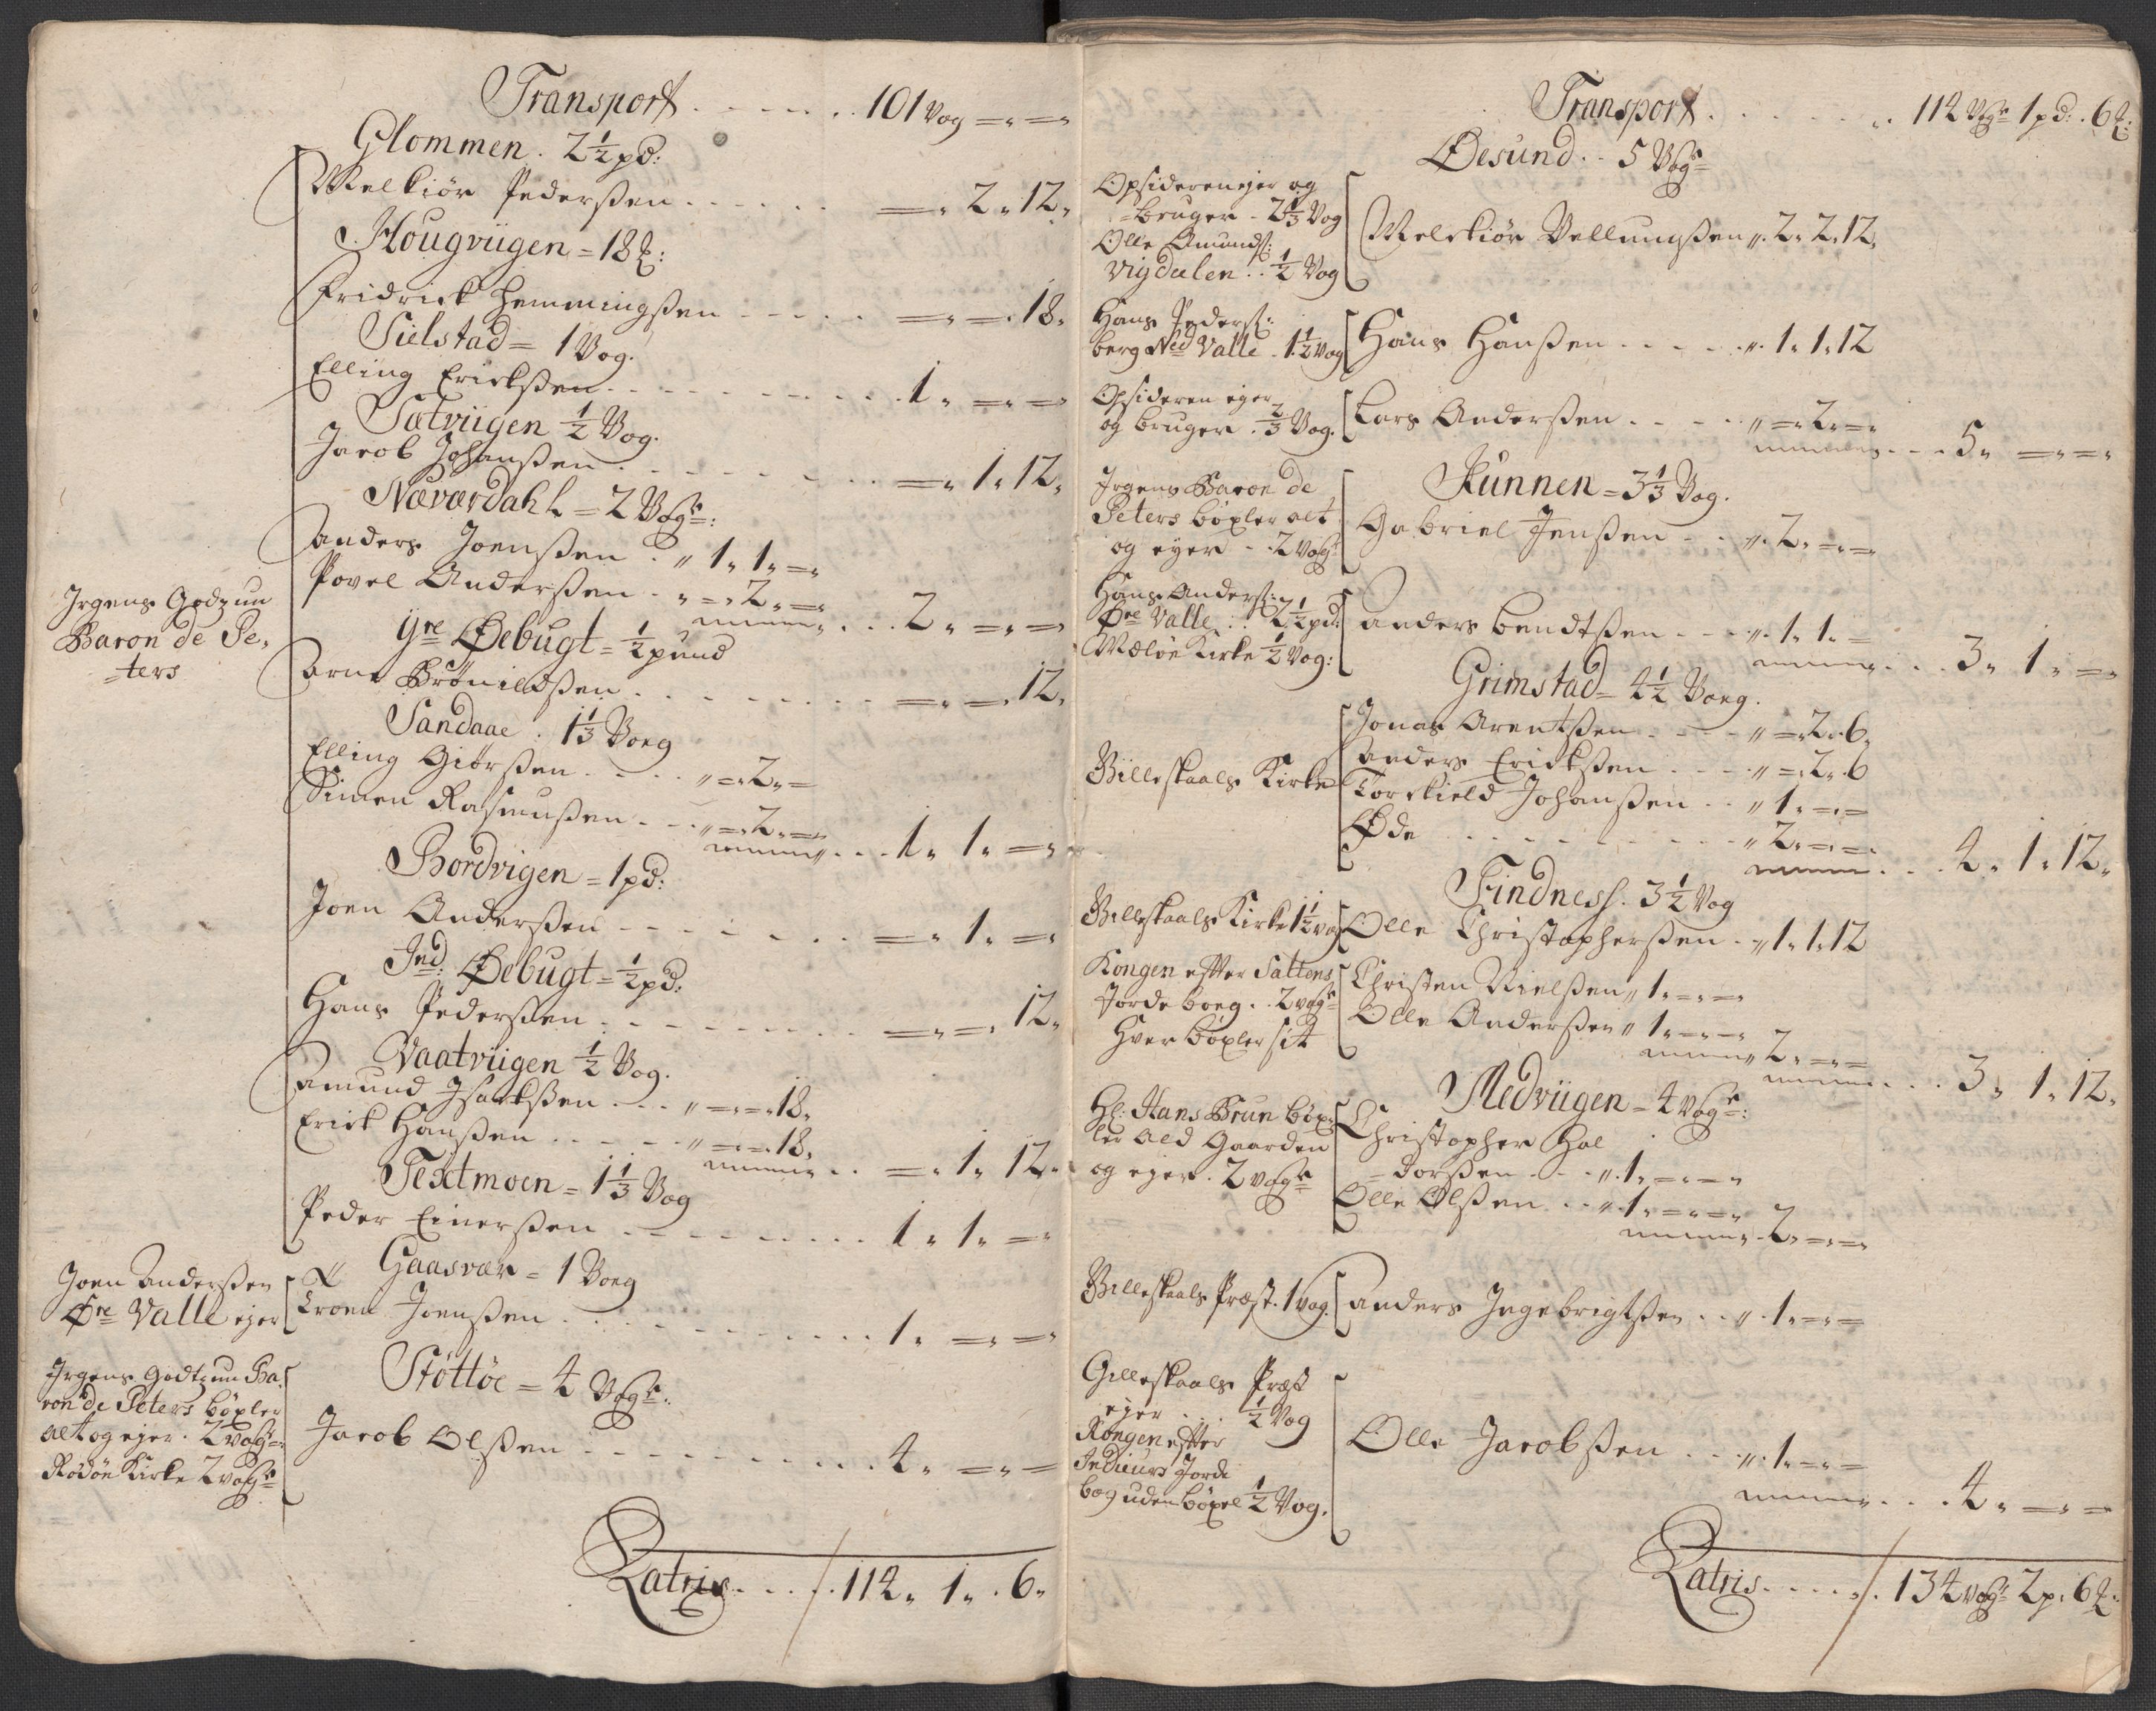 Transport . . . . . . 101 Vog =„ =„
Glommen . 2½ pd:
Melkiör Pedersßen . . . . . . =„ 2„ 12„
Hougviigen = 18 ℔:
Fridrick Hemmingsßen . . . . . =„ =„ 18„
Sielstad = 1 Vog.
Elling Ericksßen . . . . . . . . 1„ =„ =„
Satviigen ½ Vog.
Jacob Johansßen . . . . . . . =„ 1„ 12„
Næværdahl = 2 Vogr:
Anders Joensßen . „ 1„ 1„ =„
Povel Andersßen . „ =„ 2„ =„ . . . 2„ =„ =„
Irgens Godz un
Baron de Pe„
=ters
Yre Øebugt = ½ pund
Arne Brönildsßen . . . . . . . . =„ =„ 12„
Sandaae . 1⅓ Voeg
Elling Giörsßen . . . . „ =„ 2„ =
Simen Rasmusßen . . „ =„ 2„ =„ . . . 1„ 1„ =„
Bordvigen = 1 pd:
Joen Andersßen . . . . . . . =„ 1„ =„
Ind: Øebugt = ½ pd:
Hans Pedersßen . . . . . . . . =„ =„ 12„
Vaatviigen ½ Vog.
Amund Isacksßen . . . „ =„ =„ 18„
Erick Hansßen . . . . . „ =„ =„ 18„ . . =„ 1„ 12„
Textmoen = 1⅓ Vog
Peder Einersßen . . . . . . . . . 1„ 1„ =„
Joen Andersßen
Øre Valle ejer
Gaasvær = 1 Voeg
Troen Joensßen . . . . . . . . . . 1„ =„ =„
Irgens Godtz un Ba„
ron de Peters böxler
alt og ejer . 2 vogr:
Rödöe Kirke 2 vogr
Stöttöe = 4 Vogr:
Jacob Olsßen . . . . . . . . . . 4„ =„ =
Latris . . . . . 112„ 1„ . 6„
Transport . . . . . . . 112 Vgr 1 pd: . 6 ℔:
Øesund . . 5 Vogr
Opsideren ejer og
=bruger . 2⅓ Vog
Olle Amunds:
Vigdalen . . ½ Vog
Melckiör Vellumsßen „ . 2„ 2„ 12„
Hans Peders:
berg Ned Valle . 1½ vog
Hans Hansßen . . . . . „ . 1„ 1„ 12
Opsideren ejer
og bruger . ⅔ Vog.
Lars Andersßen . . . . „ =„ 2„ =„ . . . 5„ =„ =„
Kunnen = 3⅓ Vog.
Irgens Baron de
Peters böxler alt
og ejer . . 2 vogr
Gabriel Jensßen . . „ . 2„ =„ =„
Hans Anders:
Øre Valle . . 2½ pd:
Mælöe Kirke ½ Vog:
Anders Bendtsßen . . . „ . 1„ 1„ = . . . 3„ 1„ =„
Grimstad = 4½ Voeg.
Billeskaals Kirke
Jonas Arentsßen . . . . „ =„ 2„ 6„
Anders Ericksßen . . . . „ =„ 2„ 6
Torckield Johansßen . . „ 1„ =„ =
Øde . . . . . . . . . . „ 2„ =„ =„ . . . 4„ 1„ 12„
Findnesß. 3½ Vog
Billeskaals Kirke 1½ vog
Olle Christophersßen . „ 1„ 1„ 12
Kongen efter Saltens
Jordeboeg . . 2 vogr
Hver böxler sit
Christen Nielsßen „ 1„ =„ =„
Olle Andersßen „ 1„ =„ =„ 2„ =„ = . . . 3„ 1„ 12„
Medviigen = 4 vogr:
Hl: Hans Brun böx„
ler ald Gaarden
og ejer . 2 vogr
Christopher Hal
=dorsßen . . . „ . 1„ =„ =„
Olle Olsßen . . „ 1„ =„ =„ 2„ =„ =„
Billeskaals Præst . 1 vog.
Anders Ingebrigtsßen . . „ 1„ =„ =
Gilleskaals Præst
ejer . . . ½ Vog
Kongen efter
Jorde
bog uden böxel ½ Vog.
Olle Jacobsßen . . . „ . 1„ =„ = . . . 4„ =„ =
Latris . . . . . 134 vogr 2 p. 6 ℔.